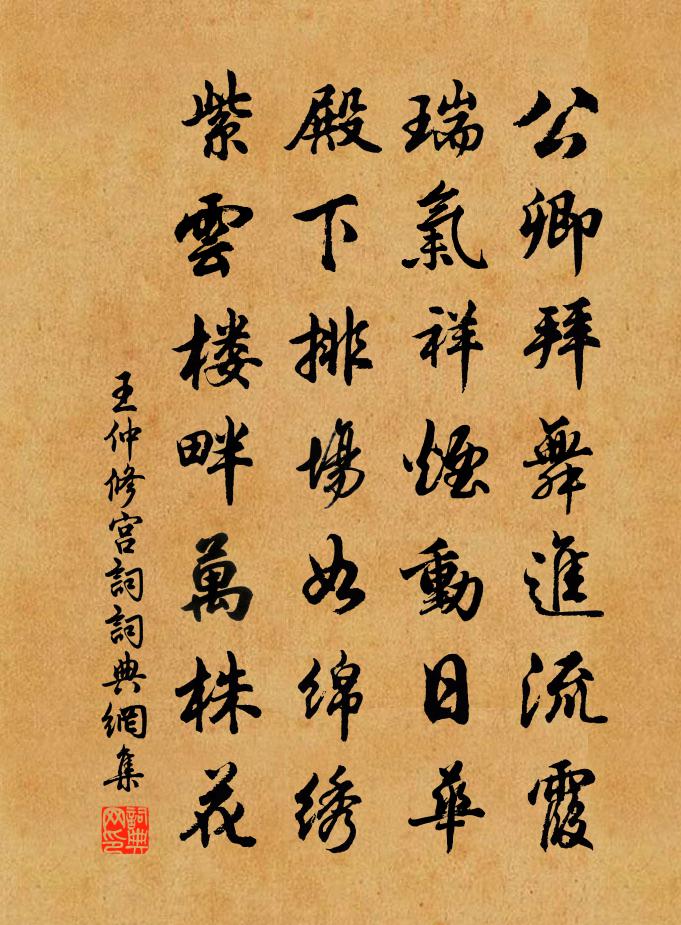 公卿拜舞進流霞
瑞氣祥煙動日華
殿下排場如綿綉
紫雲楼畔萬株花
王仲修宮詞詞典網集
詞典網印